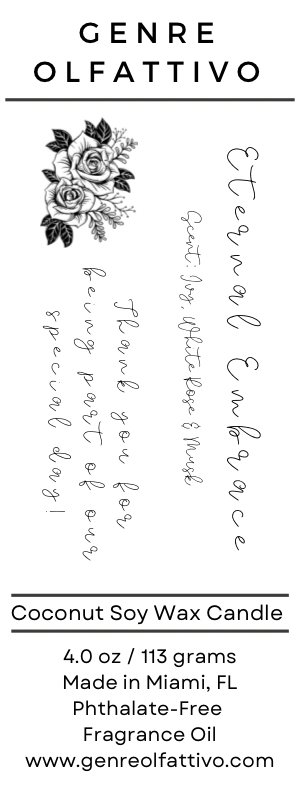 GENRE
OLFATTIVO
Eternal Embrace
Scent: Ivy, White Rose & Musk
Thank you for
being part of our
special day!
Coconut Soy Wax Candle
4.0 oz / 113 grams
Made in Miami, FL
Phthalate-Free
Fragrance Oil
www.genreolfattivo.com